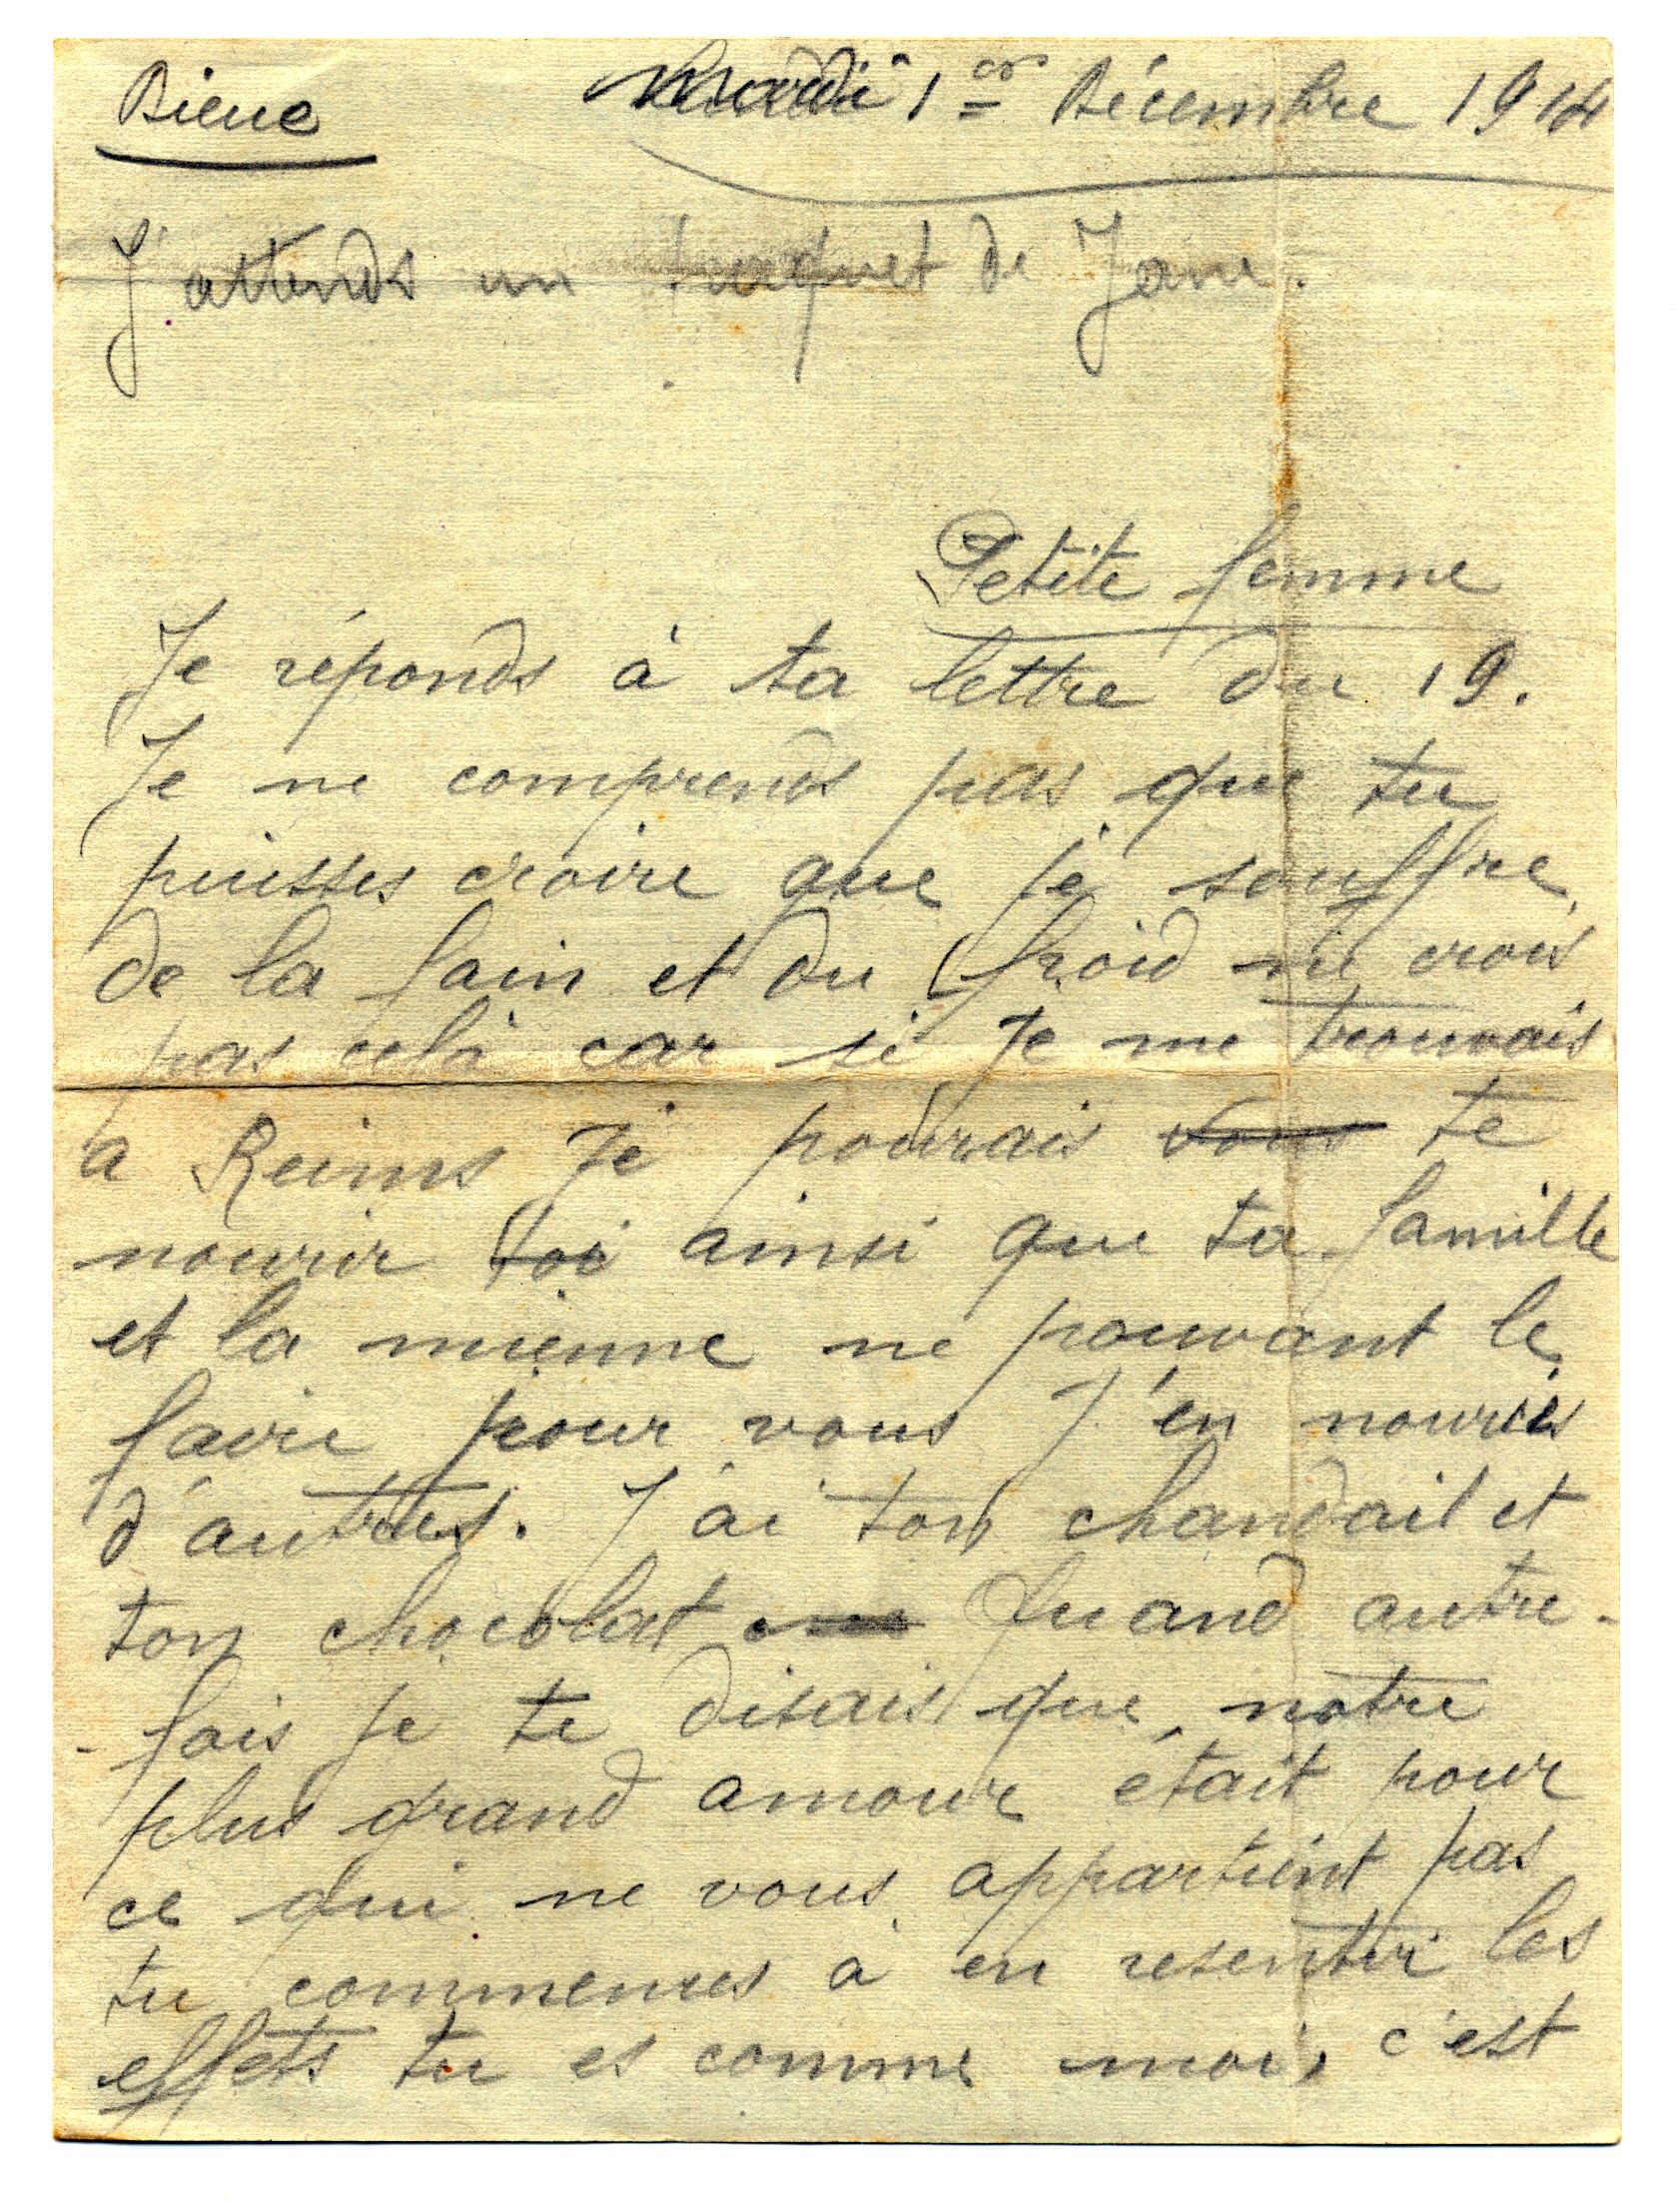 Bieue Mardi 1er Décembre 1914
J'attends un paquet de Jane.
Petite femme
Je réponds à ta lettre du 19.
Je ne comprends pas que tu
puisses croire que je souffre
de la fain et du froid ne crois
pas celà car si Je me trouvais
a Reims Je pourais vous te
nourir toi ainsi que ta famille
et la mienne ne pouvant le
faire pour vous J'en nourris
d'autres. J'ai ton chandail et
ton chocolat Quand autre-
-fois je te disais que notre
plus grand amour était pour
ce qui ne vous appartient pas
tu commences à en resentir les
effets tu es comme moi, c'est